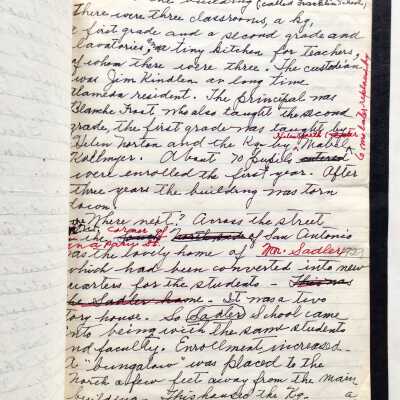 the building (called Franklin School)
There were three classrooms, a kg,
a first grade and a second grade and
lavatories, one tiny kitchen for teachers,
of whom there were three. The custodian
was Jim Kindlen a long time
Alameda resident. The principal was
Blanche Frost who also taught the second
grade, the first grade was taught by
Helen Norton and the Kg by Mabel
Kollmyer. About 70 pupils entered
were enrolled the first year. After
three years the building was torn
down.
Where next? Across the street
corner of
North side of San Antonio
was the lovely home of Mr. Sadler
which had been converted into new
quarters for the students - This was
the Sadler home. It was a two
story house. So Sadler School came
into being with the same students
and faculty. Enrollment increased
A "bungalow" was placed to the
North a few feet away from the main
building - This housed the Kg. a